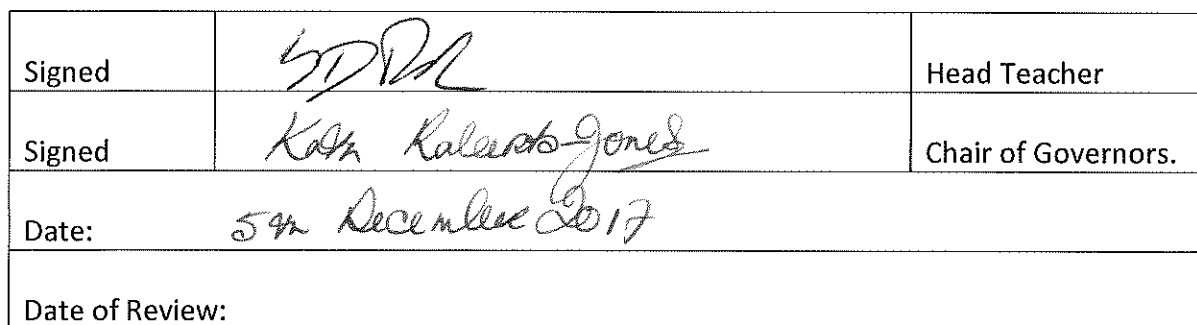 Signed Head Teacher
Signed Kath Roberts-Jones Chair of Governors.
Date: 5th December 2017
Date of Review: